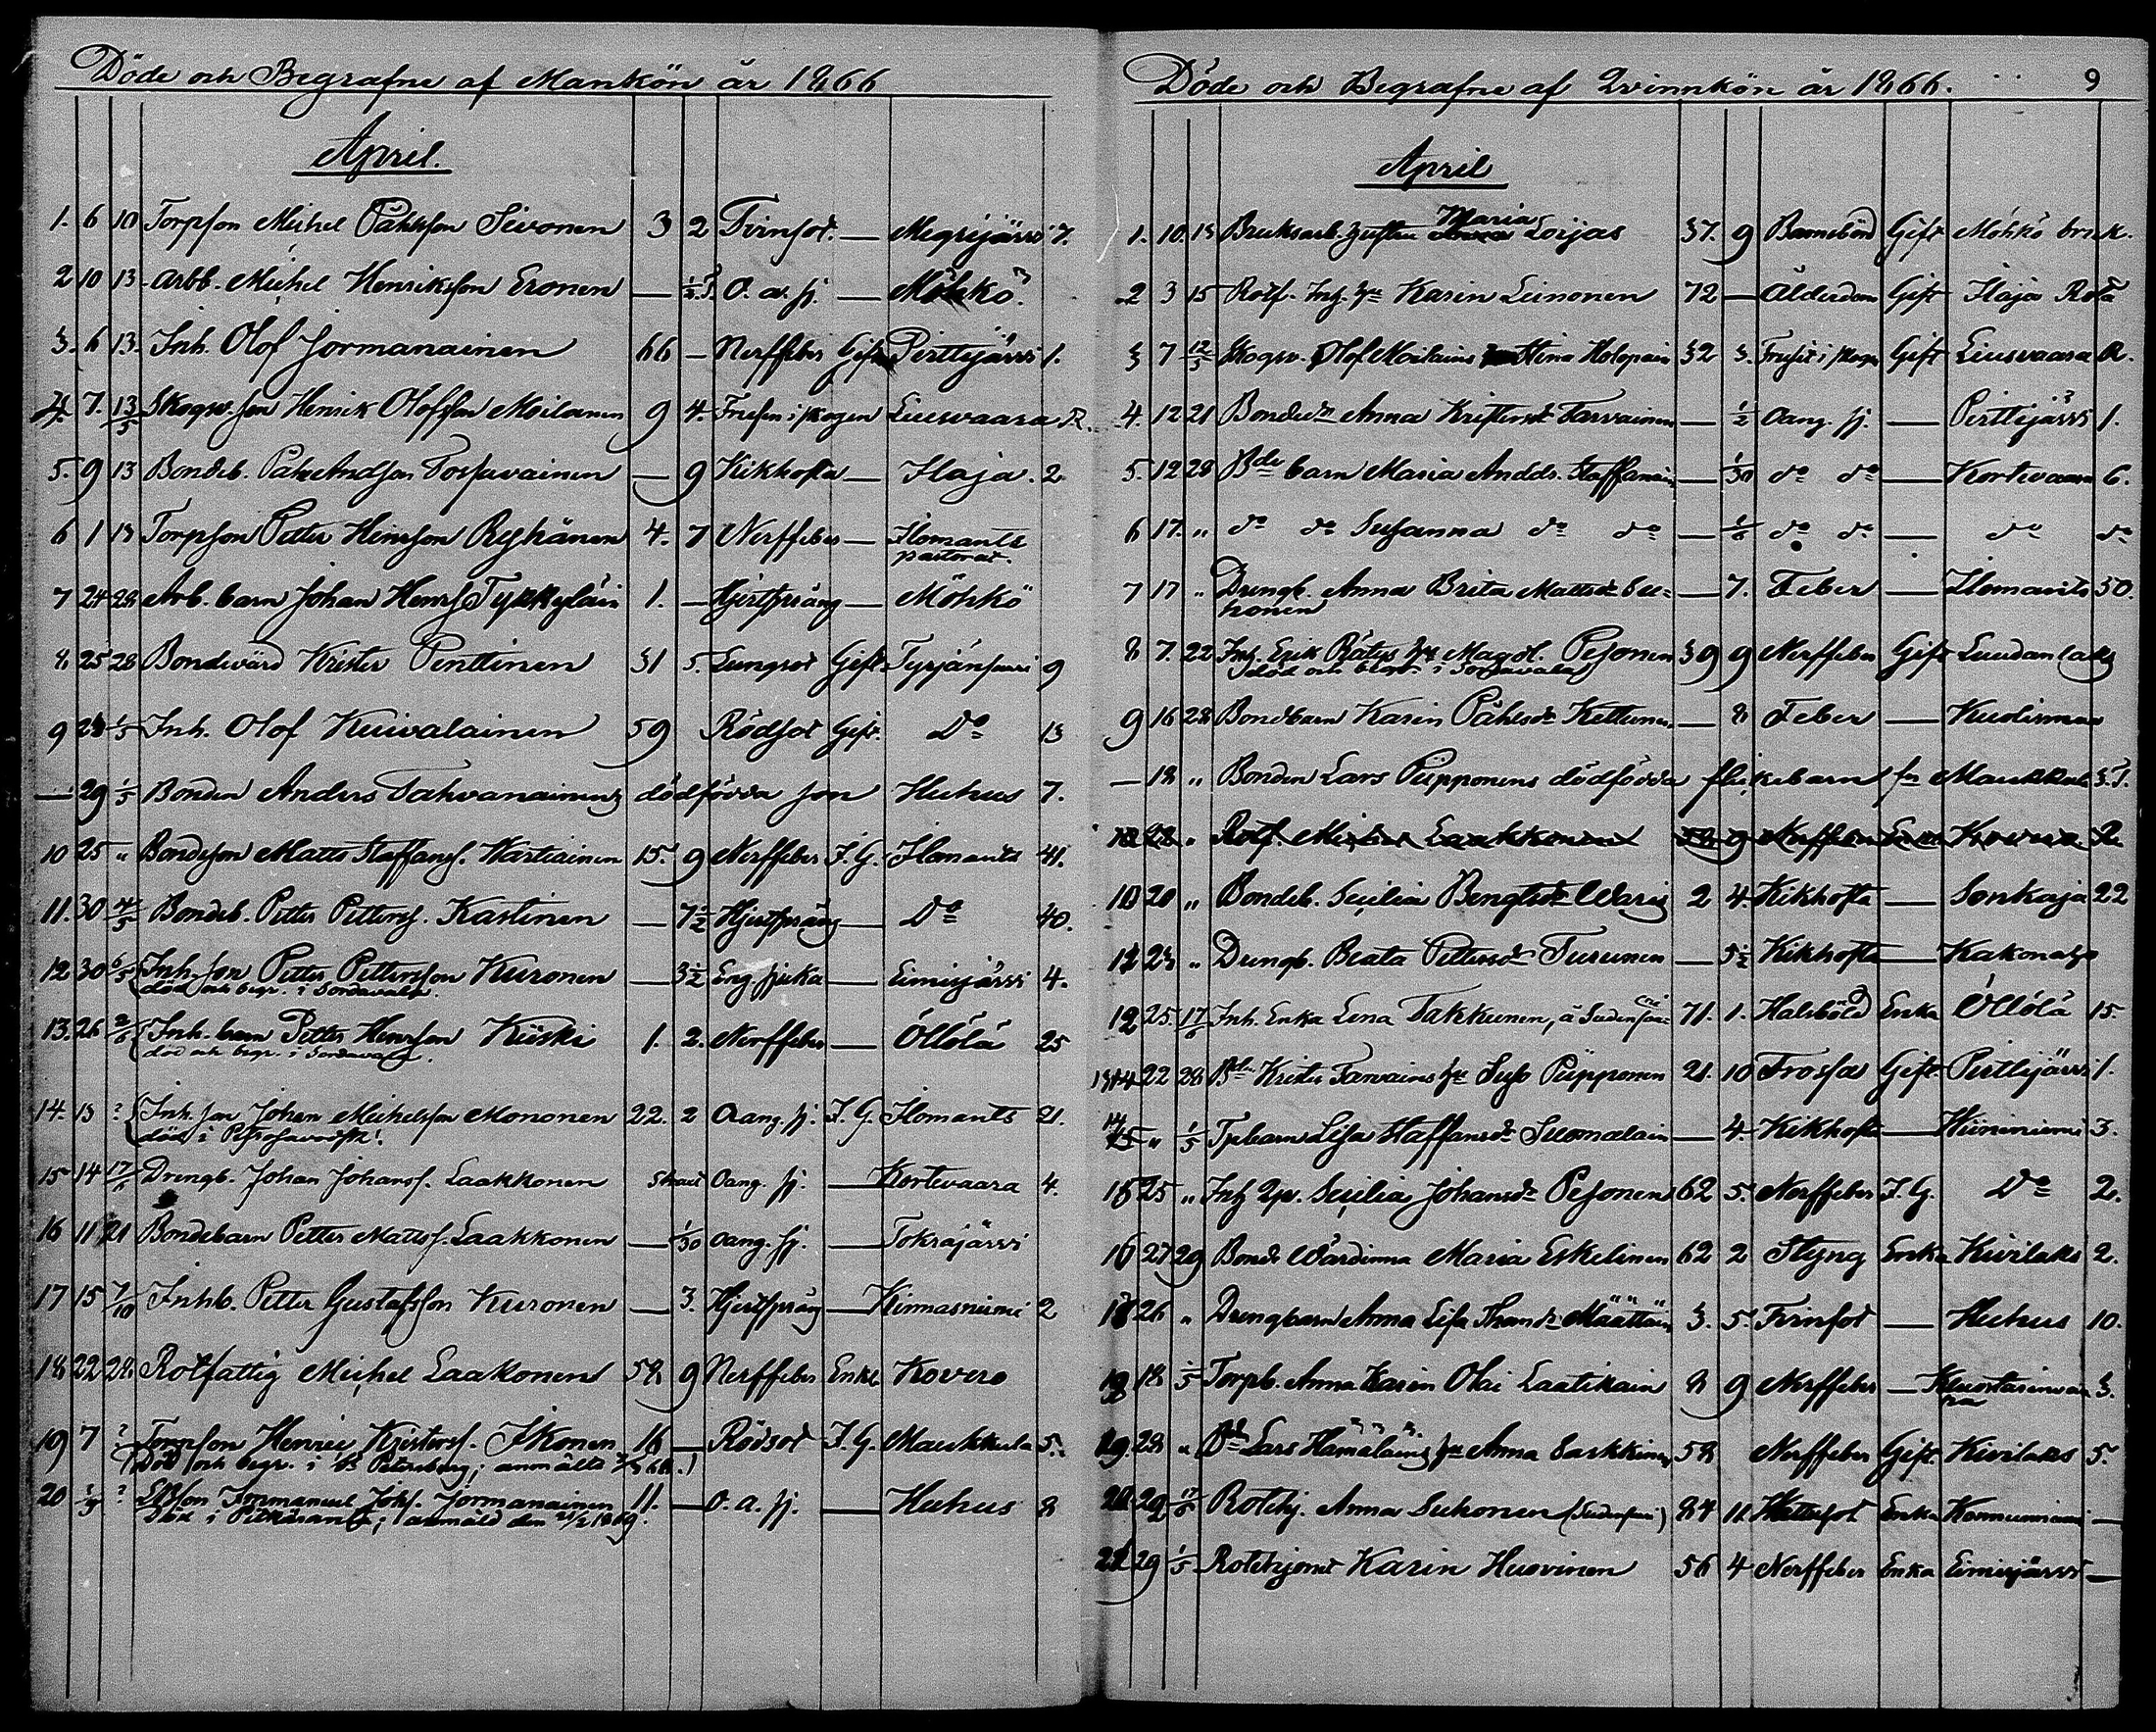 Döde och Begrafne af Mankön år 1866
April.
1. 6 10 Torpson Michel Påhlsson Sivonen 3 2 Tvinsot. — Megrijärvi 7.
2 10 13 Arbb. Michel Henriksson Eronen — ½ O. a. sj. — Möhkö.
3. 6 13. Inh. Olof Jormanainen 66 — Nerffeber Gift Perttijärvi 1.
4. 7. 13/5 Skogsv. son Henrik Olofsson Moilanen 9 4. Frusen i skogen Liusvaara R.
5. 9 13 Bondeb. Andsson Torvavainen — 9 Kikhosta — Ilaja. 2
6 1 13 Torpson Petter Henrsson Ryhänen 4. 7 Nerffeber — Ilomants
pastorat.
7 24 28 Arb. barn Johan Henrs. Tykkyläin 1. — Hjertsprång — Möhkö
8. 25 28 Bondevärd Krister Penttinen 51 5. Lungsot Gift 9
9 28 1/5 Inh. Olof Kuivalainen 59 Rödsot Gift. Do 13
— 29 1/5 Bonden Anders Tahvanainens dödfödda son Huhus 7.
10 25 " Bondeson Matts Staffanss. Wartiainen 15. 9 Nerffeber I. G. Ilomants 41.
11. 30 4/5 Bondeb. Petter Petterss. Kastinen — 7½ Hjertsprång — Do 40.
12 30 6/5 Inh. son Petter Pettersson Kuronen — 3½ Eng. sjuka — Eimisjärvi 4.
död och begr. i Sordavala.
13. 26 Inh. barn Petter Henrsson Kiiski 1. 2. Nerffeber — Öllölä 25
död och begr. i Sordavala.
14. 13 ? Inh. son Johan Michelsson Mononen 22. 2 Oang. sj. I. G. Ilomants 21.
död i
15 14 Drengb. Johan Johanss. Laakkonen Oang. sj. — Kortevaara 4.
16 11 21 Bondebarn Petter Mattss. Laakkonen — 1/30 oang. sj. — Tokrajärvi
17 15 7/10 Inhb. Petter Gustafsson Kuronen — 3. Hjertsprång — Kinnasniemi 2
18 22 28. Rotfattig Michel Laakonen 58 9 Nerffeber Enkl. Kovero
19 7 ? Torpson Henric Kristerss. Ikonen 16 — Rödsot I. G. Maukkula 5.
Död och begr. i St Petersborg; anmälts
20 ? Immanuel Johs. Jormanainen 11. — o. a. sj. — Huhus 8
Död i Pitkäranta; anmäld den
Döde och Begrafne af Qvinnkön år 1866. 9
April
1. 10. 13 Bruksarb. hustru Maria Loijas 37. 9 Barnsbörd Gift Möhkö bruk.
2 3 15 Rotf. Inh. hu Karin Leinonen 72 — Ålderdom Gift Ilaja Rota
3 7 12/5 Skogsv. Olof Moilains Stina Holopain 32 3. Frusit i skogen Gift Liusvaara R.
4. 12 21 Bonded. Anna Kristersd. Tarvainen — ½ Oang. sj. — Perttijärvi 1.
5. 12 28 Bde barn Maria Andds. Staffanain — 1/30 do do — Kortevaara 6.
6 17. " do do Susanna do do — do do — do do
7 17 " Drengb. Anna Brita Mattsd. — 7. Feber — Ilomants 50.
honen
8 7. 22 Inh. Erik Rätys hu Magdl. Pesonen 39 9 Nerffeber Gift Luudanlaks
död och begr. i Sordavala
9 16 28 Bondbarn Karin Påhlsd. Kettunen — 8 Feber — Kuolismaa
— 18 " Bonden Lars Piipponens dödfödda flickebarn fr. Maukkula
22 " Rotf. Michel Laakkonen 58 9 Nerffeber Enkl. Kovero 2
10 20 " Bondeb. Secilia Bengtsd. Waris 2 4. Kikhosta — Sonkaja 22
11 23 " Drengb. Beata Pettersd. Turunen — 5½ Kikhosta —
12 25. Inh. Enka Lena Takkunen, 71. 1. Halsböld Enka Öllölä 15.
13 22 28 Bde Krister Tarvains hu Susa Piipponen 21. 10 Trossa Gift Perttijärvi 1.
14 " 1/5 Tpbarn Lisa Staffansd. Suomalain — 4. Kikhosta — Hiininiemi 3.
15 25 " Inh. Secilia Johansd. Pesonen 62 5. Nerffeber I. G. Do 2.
16 27 29 Bonde Wärdinna Maria Eskelinen 62 2 Styng Enka Kivilaks 2.
17 26 " Drengbarn Anna Lisa Määttäin 3. 5. Tvinsot — Huhus 10.
18 18 1/5 Torpb. Anna Karin Olai Laatikain 8 9 Nerffeber — 3.
19. 28 " Lars Hämäläins hu Anna Sarkkinen 58 Nerffeber Gift Kivilaks 5.
20 29 Rotehj. Anna Suhonen 84 11 Enka —
21 29 1/5 Rotehjonet Karin Huovinen 56 4 Nerffeber Enka Eimisjärvi —